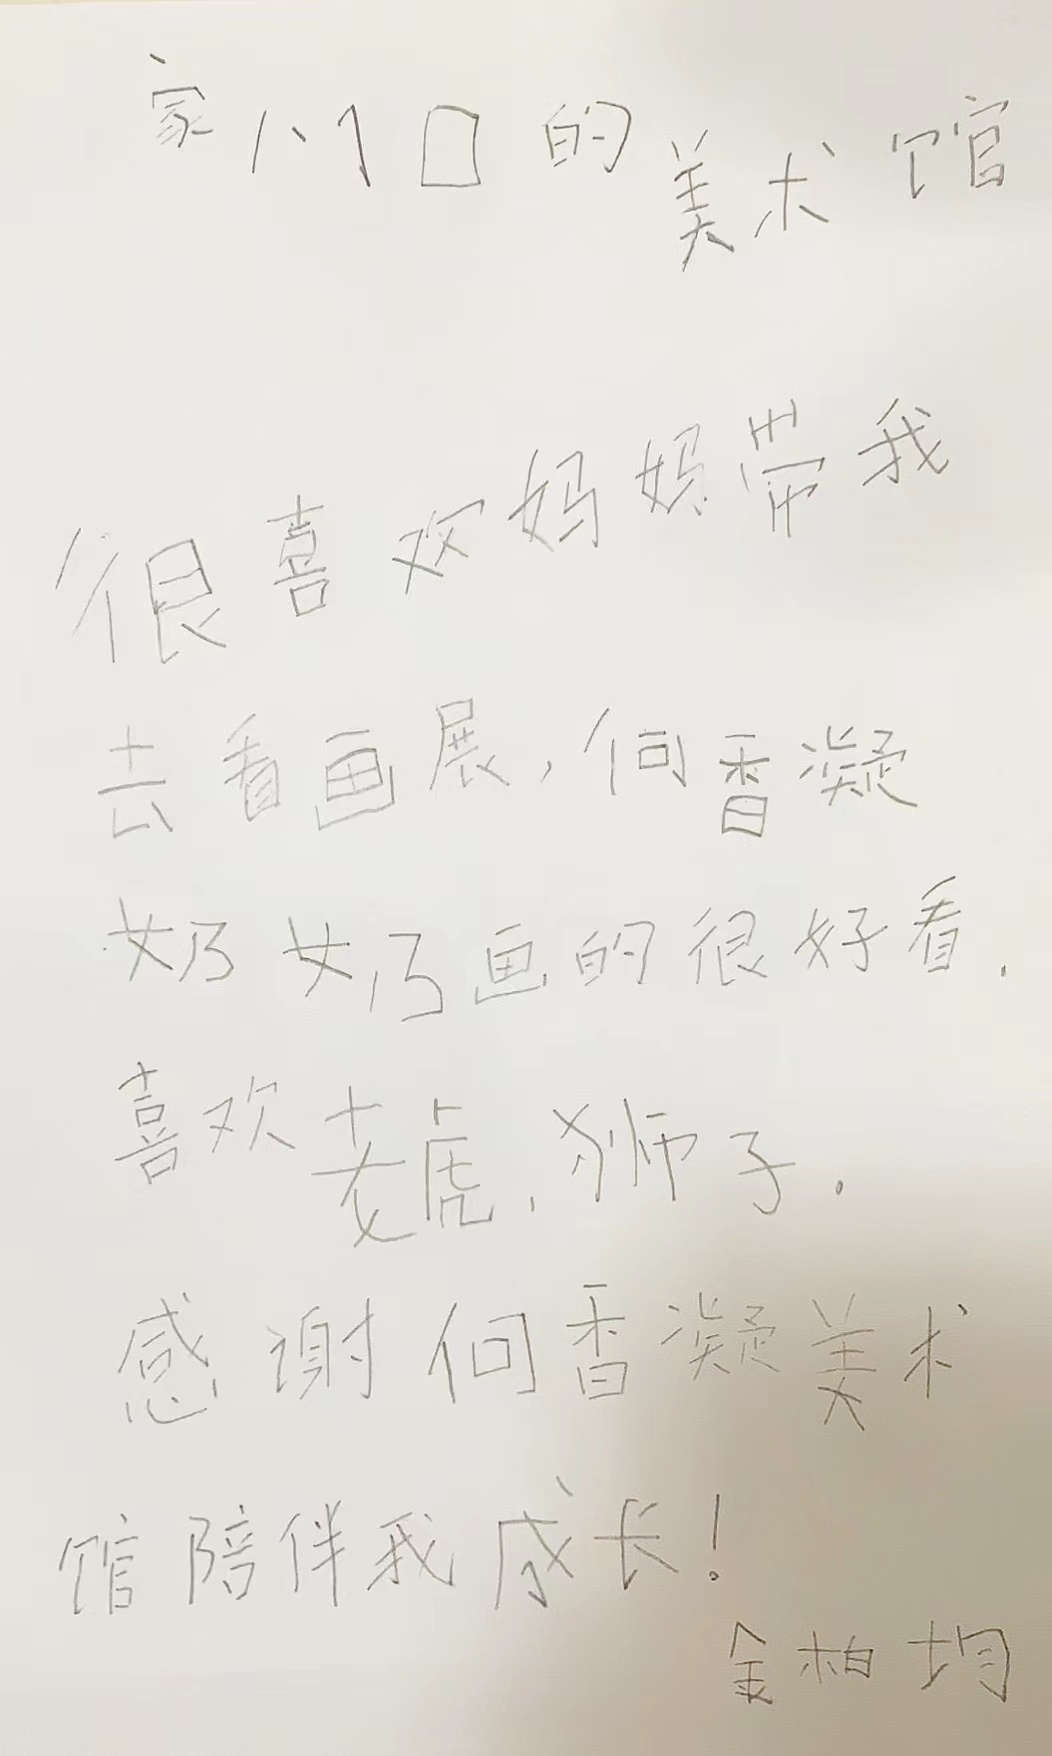 家门口的美术馆
很喜欢妈妈带我
去看画展,何香凝
奶奶画的很好看.
喜欢老虎,狮子.
感谢何香凝美术
馆陪伴我成长!
金柏均